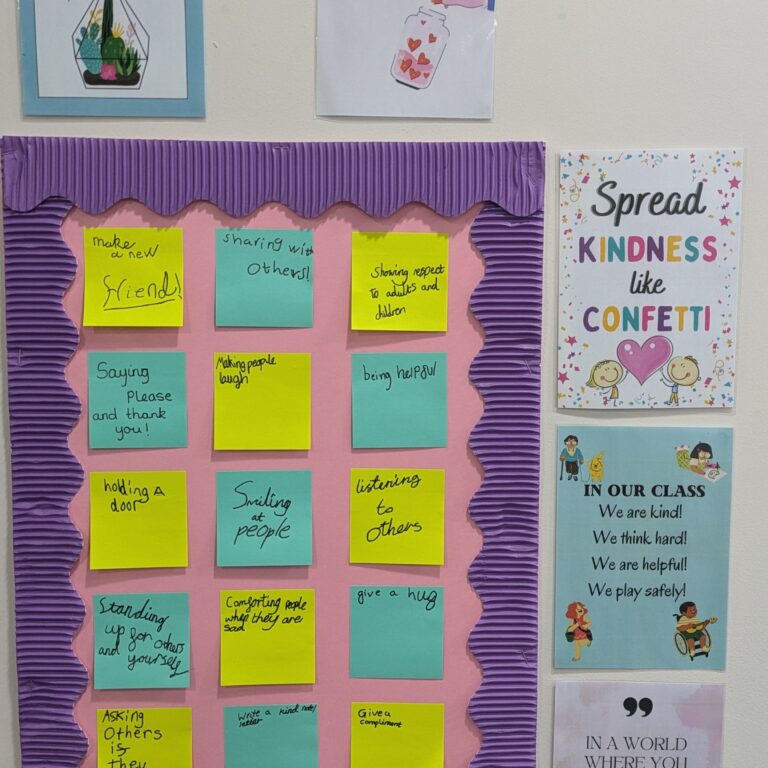 make
a new
friend!
sharing with
others!
Showing respect
to adults and
children
Saying
Please
and thank
you!
Making people
laugh
being helpful
holding A
door
Smiling
at
people
listening
to
others
Standing
up for others
and yourself
Comforting people
when they are
sad
give a hug
Asking
Others
is
they
Write a kind note/
letter
Give a
compliment
Spread
KINDNESS
like
CONFETTI
IN OUR CLASS
We are kind!
We think hard!
We are helpful!
We play safely!
"
IN A WORLD
WHERE YOU